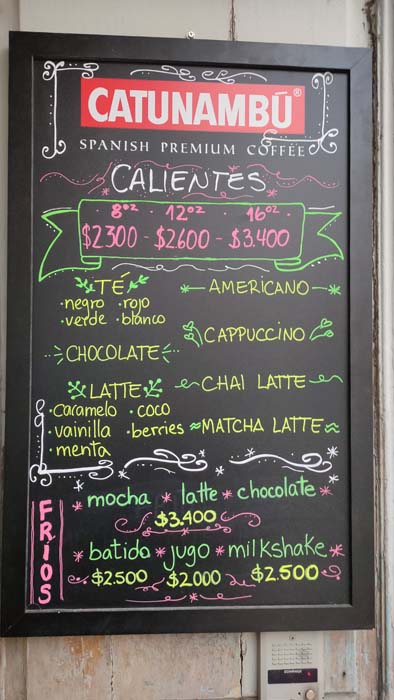 CATUNAMBÚ®
SPANISH PREMIUM COFFEE
CALIENTES
8oz · 12oz · 16oz ·
$2300 - $2600 - $3.400
TÉ
·negro ·rojo
·verde ·blanco
CHOCOLATE
LATTE
·caramelo ·coco
·vainilla ·berries
·menta
AMERICANO
CAPPUCCINO
CHAI LATTE
MATCHA LATTE
FRIOS
mocha * latte * chocolate
$3.400
batido * jugo * milkshake
$2.500 $2.000 $2.500